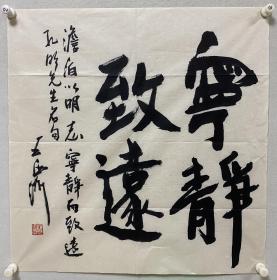 寧靜
致遠
澹泊以明志寧靜而致遠
孔明先生名句